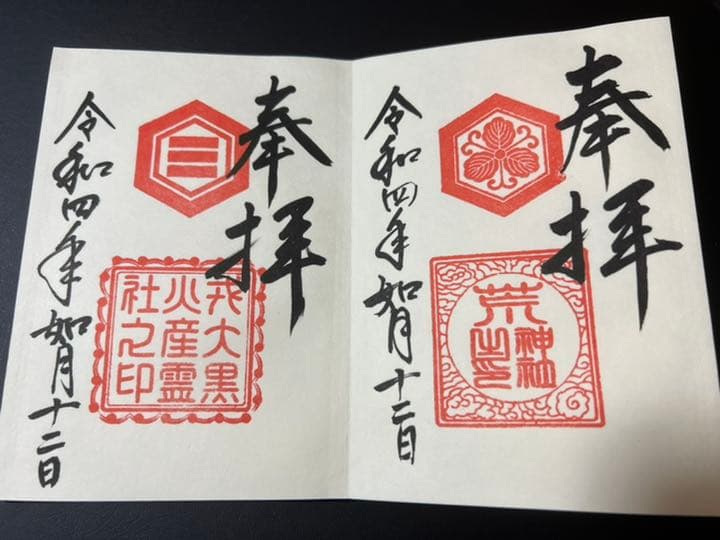 奉拝
荒神社之印
令和四年如月十二日
奉拝
戎大黒
火産霊
社之印
令和四年如月十二日